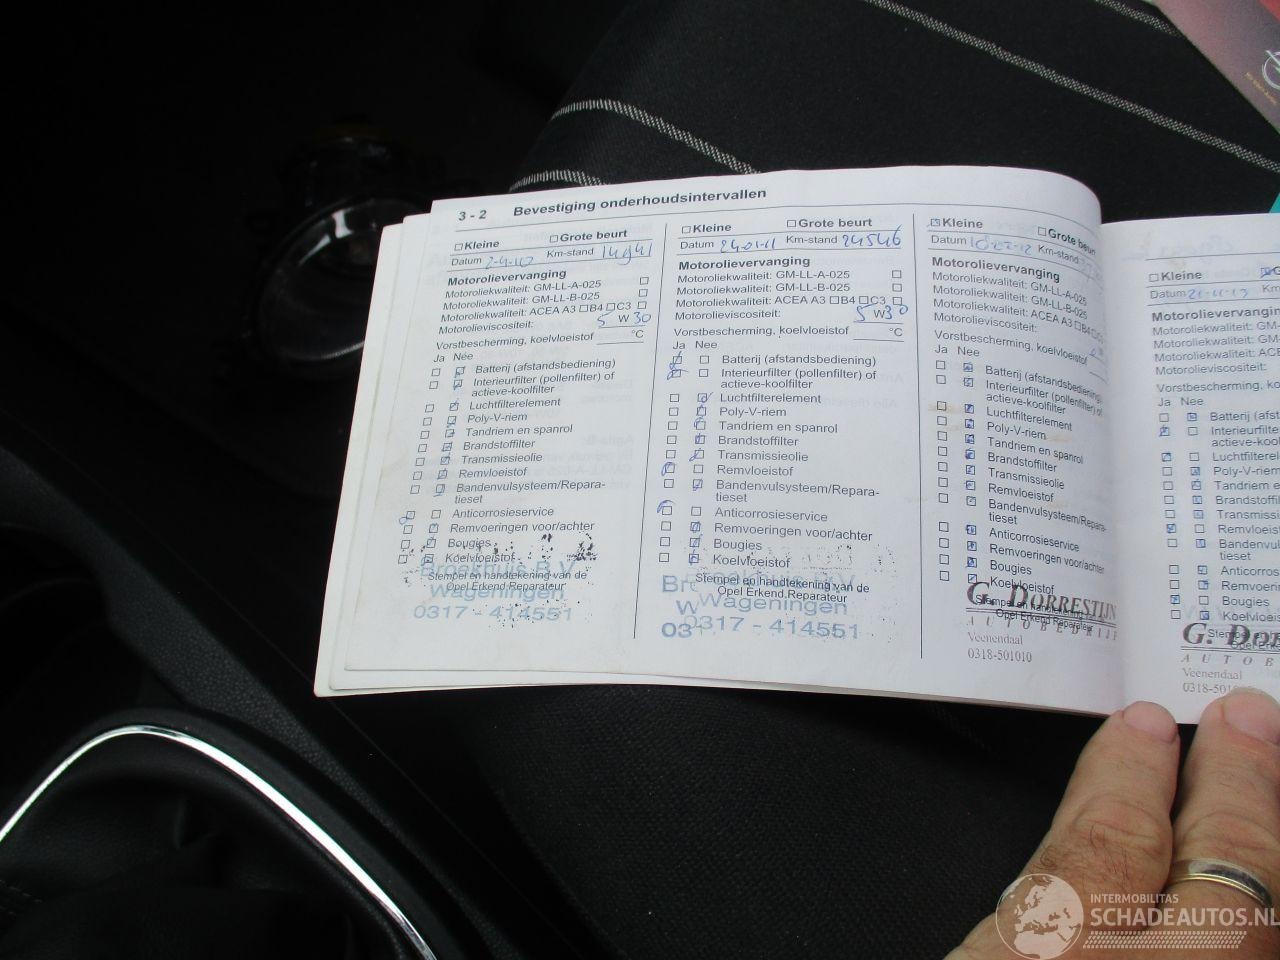 3 - 2 Bevestiging onderhoudsintervallen
Kleine Grote beurt
Datum Km-stand 14941
Motorolievervanging
Motoroliekwaliteit: GM-LL-A-025
Motoroliekwaliteit: GM-LL-B-025
Motoroliekwaliteit: ACEA A3 B4 C3
Motorolieviscositeit: 5 W 30
Vorstbescherming, koelvloeistof °C
Ja Nee
Batterij (afstandsbediening)
Interieurfilter (pollenfilter) of
actieve-koolfilter
Luchtfilterelement
Poly-V-riem
Tandriem en spanrol
Brandstoffilter
Transmissieolie
Remvloeistof
Bandenvulsysteem/Repara-
tieset
Anticorrosieservice
Remvoeringen voor/achter
Bougies
Koelvloeistof
Broekhuis B.V.
Stempel en handtekening van de
Wageningen
Opel Erkend Reparateur
0317 - 414551
Kleine Grote beurt
Datum 24-01-11 Km-stand 24546
Motorolievervanging
Motoroliekwaliteit: GM-LL-A-025
Motoroliekwaliteit: GM-LL-B-025
Motoroliekwaliteit: ACEA A3 B4 C3
Motorolieviscositeit: 5 W 30
Vorstbescherming, koelvloeistof °C
Ja Nee
Batterij (afstandsbediening)
Interieurfilter (pollenfilter) of
actieve-koolfilter
Luchtfilterelement
Poly-V-riem
Tandriem en spanrol
Brandstoffilter
Transmissieolie
Remvloeistof
Bandenvulsysteem/Repara-
tieset
Anticorrosieservice
Remvoeringen voor/achter
Bougies
Koelvloeistof
Broekhuis B.V.
Stempel en handtekening van de
Wageningen
Opel Erkend Reparateur
0317 - 414551
Kleine Grote beurt
Datum Km-stand
Motorolievervanging
Motoroliekwaliteit: GM-LL-A-025
Motoroliekwaliteit: GM-LL-B-025
Motoroliekwaliteit: ACEA A3 B4 C3
Motorolieviscositeit:
Vorstbescherming, koelvloeistof
Ja Nee
Batterij (afstandsbediening)
Interieurfilter (pollenfilter) of
actieve-koolfilter
Luchtfilterelement
Poly-V-riem
Tandriem en spanrol
Brandstoffilter
Transmissieolie
Remvloeistof
Bandenvulsysteem/Repara-
tieset
Anticorrosieservice
Remvoeringen voor/achter
Bougies
Koelvloeistof
G. DORRESTIJN
Stempel en handtekening van de
Opel Erkend Reparateur
AUTOBEDRIJF
Veenendaal
0318-501010
Kleine G
Datum
Motorolievervangin
Motoroliekwaliteit: GM
Motoroliekwaliteit: GM-
Motoroliekwaliteit: ACE
Motorolieviscositeit:
Vorstbescherming, koelv
Ja Nee
Batterij (afst
Interieurfilte
actieve-koo
Luchtfiltere
Poly-V-rie
Tandriem e
Brandstoffi
Transmiss
Remvloeis
Bandenvul
tieset
Anticorros
Remvoerin
Bougies
Koelvloeis
G. DO
Stempe
Opel Erke
AUTOB
Veenendaal
0318-501
INTERMOBILITAS
SCHADEAUTOS.NL